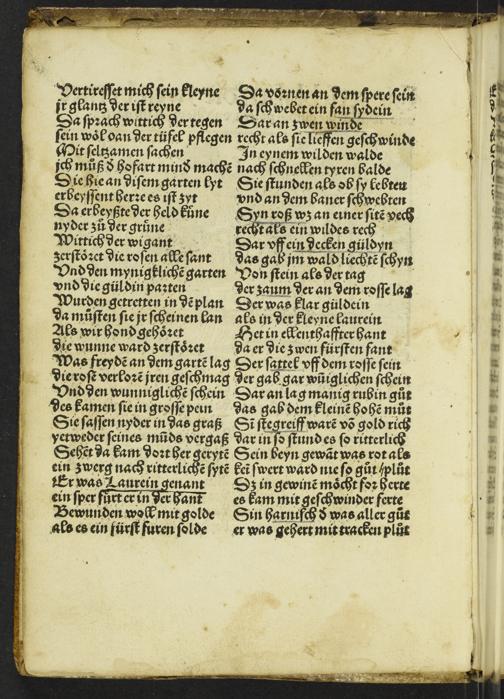 Vertiresset mich sein kleyne
jr glantz der ist reyne
Da sprach wittich der tegen
sein wöl oan der tüfel pflegen
Mit seltzamen sachen
jch müß d̄ hofart mind machē
Die hie an disem garten lyt
erbeyssent herre es ist zyt
Da erbeyßte der held küne
nyder zů der grüne
Wittich der wigant
zerstöret die rosen alle sant
Vnd den mynigklichē garten
vnd die güldin parten
Wurden getretten in dē plan
da müsten sie jr scheinen lan
Als wir hond gehöret
die wunne ward zerstöret
Was freydē an dem gartē lag
die rosē verlorē jren geschmag
Vnd den wunniglichē schein
des kamen sie in grosse pein
Sie sassen nyder in das graß
yetweder seines můds vergaß
Sehēt da kam dort her gerytē
ein zwerg nach ritterlichē sytē
Er was Laurein genant
ein sper fürt er in der hant
Bewunden woll mit golde
als es ein fürst furen solde
Da vornen an dem spere sein
da schwebet ein fan sydein
Dar an zwen winde
recht als sie lieffen geschwinde
Jn eynem wilden walde
nach schnellen tyren balde
Sie stunden als ob sy lebten
vnd an dem baner schwebten
Syn roß wz an einer sitē vech
recht als ein wildes rech
Dar vff ein decken güldyn
das gab jm wald liechtē schyn
Von stein als der tag
der zaum der an dem rosse lag
Der was klar güldein
als in der kleyne laurein
Het in ellenthaffter hant
da er die zwen fürsten fant
Der sattel vff dem rosse sein
der gab gar wüiglichen schein
Dar an lag manig rubin gůt
das gab dem kleinē hohē můt
Sī stegreiff warē vō gold rich
dar in so stund es so ritterlich
Sein beyn gewāt was rot als
keī swert ward nie so gůt plůt
Dz in gewinē möcht for herte
es kam mit geschwinder ferte
Sin harnisch d̄ was aller gůt
er was gehert mit tracken plůt